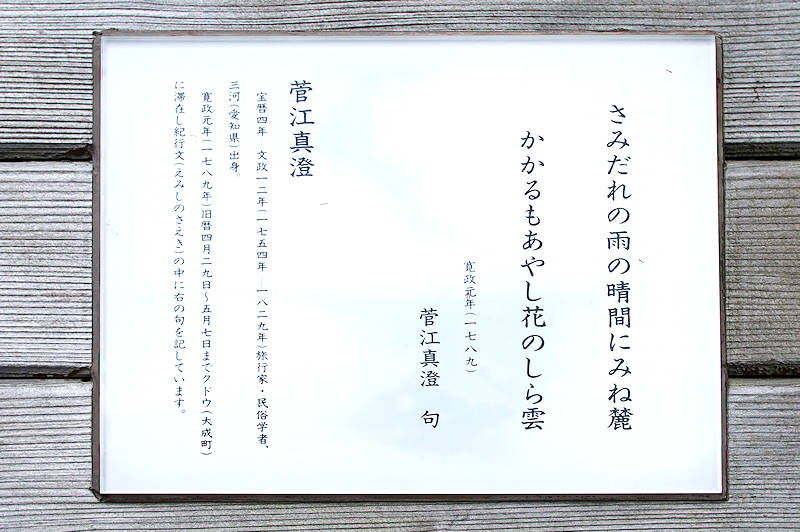 さみだれの雨の晴間にみね麓
かかるもあやし花のしら雲
寛政元年(一七八九)
菅江真澄 句
菅江真澄
宝暦四年 文政一二年(一七五四年―一八二九年)旅行家・民俗学者、
三河(愛知県)出身。
寛政元年(一七八九年)旧暦四月二九日～五月七日までクドウ(大成町)
に滞在し紀行文(えみしのさえき)の中に右の句を記しています。